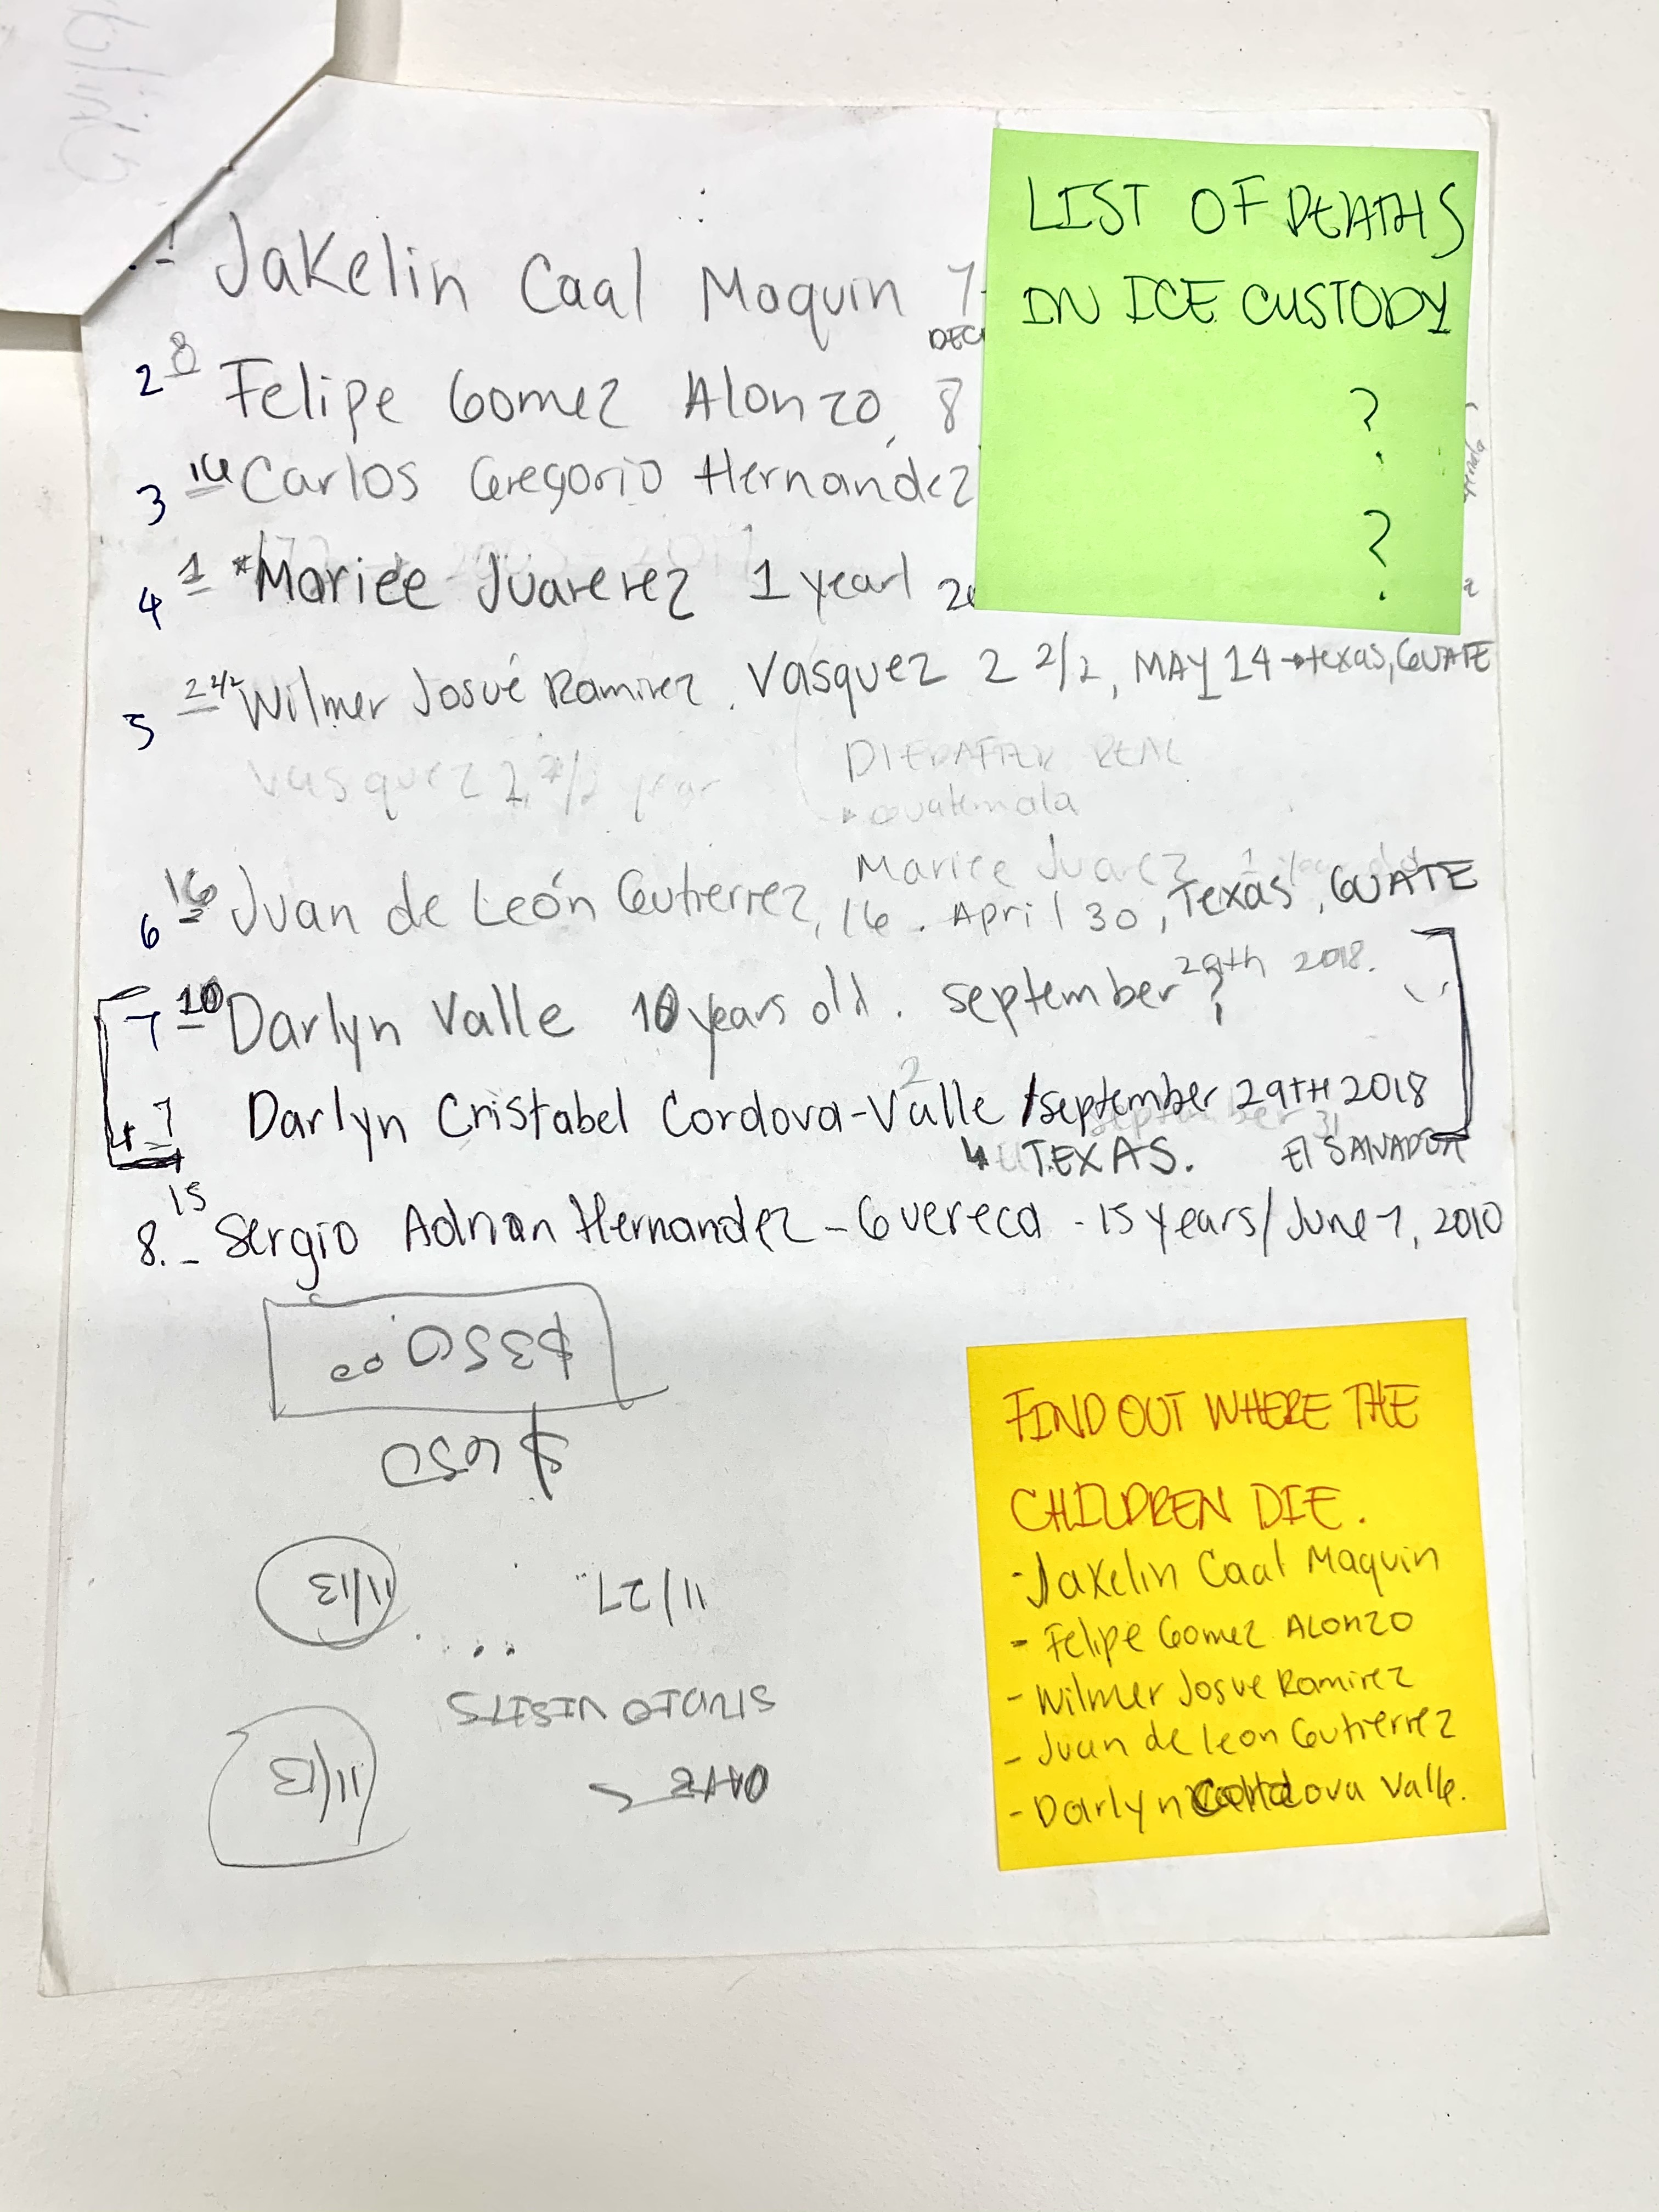 LIST OF DEATHS
IN ICE CUSTODY
?
?
Jakelin Caal Maquin 7
DEC
2 8 Felipe Gomez Alonzo, 8
3 16 Carlos Gregorio Hernandez
4 1 *Mariee Juarerez 1 year
5 2 2/2 Wilmer Josué Ramirez. Vasquez 2 2/2, MAY 14 → texas, GUATE
Vasquez 2, 2/2 year
DIED AFTER
Guatemala
Mariee Juarez 1 year old
6 16 Juan de León Gutierrez, 16. April 30, Texas, GUATE
7 10 Darlyn Valle 10 years old. september ? 29th 2018.
7 Darlyn Cristabel Cordova-Valle / september 29TH 2018
TEXAS. El SALVADOR
15
8. - Sergio Adrian Hernandez - Guereca - 15 years / June 7, 2010
$350.00
$ 650
11/13 11/27
STUDIO VISITS
11/13 DATE
FIND OUT WHERE THE
CHILDREN DIE.
- Jakelin Caal Maquin
- Felipe Gomez ALonzo
- Wilmer Josue Ramirez
- Juan de leon Gutierrez
- Darlyn Cordova Valle.